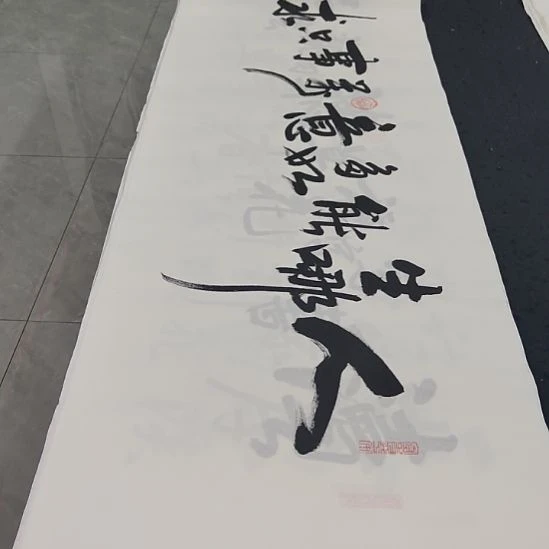 人生哪能多如意万事只求